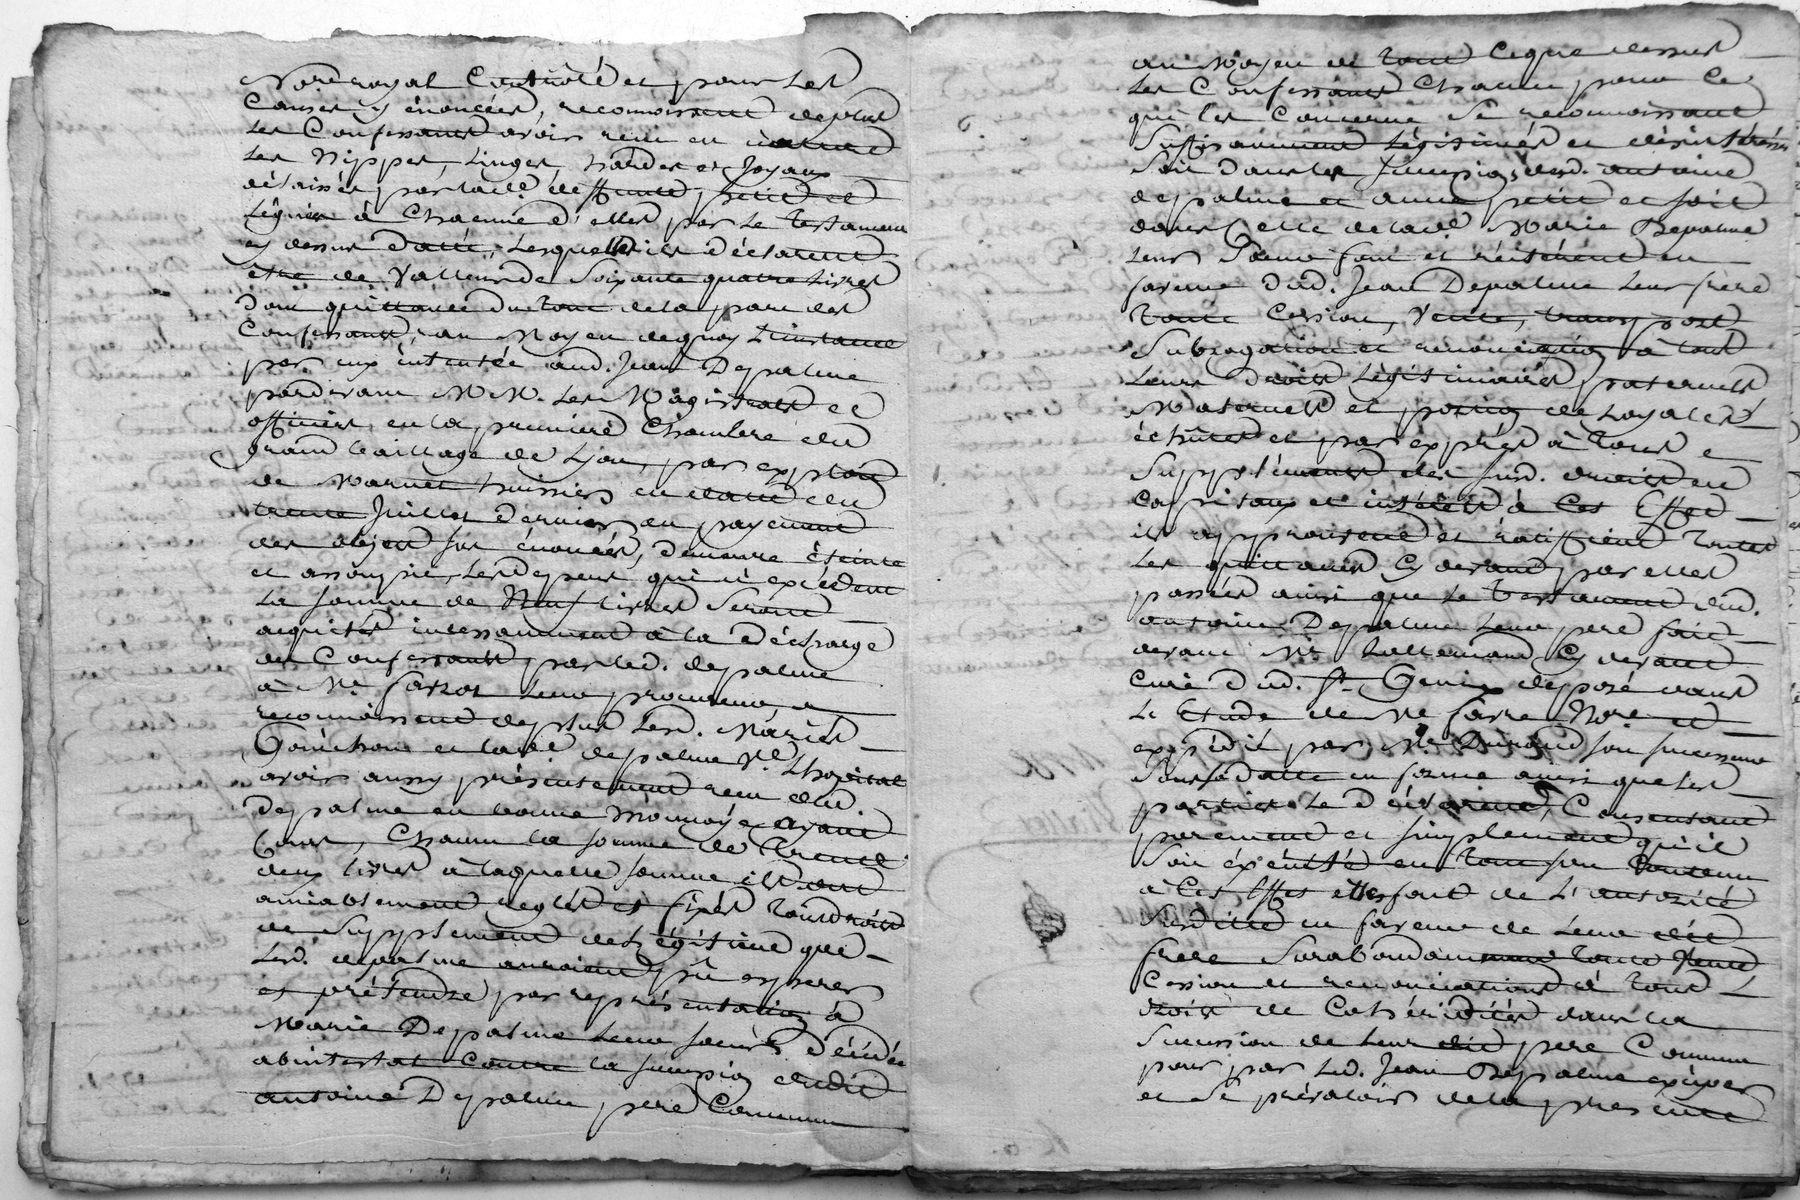 No.re royal Controlé et pour les
Causes y énoncées, reconnoissent deplus
les Confessants avoir reçu en nature
les Nippes, Linges, hardes et Joyaux
délaissés par lad.e deffunte petit et
légués à Chacune d'elles par le testament
cy dessus datté, lesquelles ils déclarent
être de Valleur de Soixante quatre Livres
dont quittance du tout de la part des
Confessants, au Moyen de quoy L'instance
par eux intentée aud. Jean Depalme
pardevant M.M. les Magistrats et
officiers en la premiere Chambre du
grand bailliage de Lyon, par exploit
de huissier en datte du
trente Juillet dernier en payement
des objets sus énoncés, demeure éteinte
et assoupie, les depens qui n'excèdent
la somme de Neuf livres Seront
acquités incessamment à la décharge
des Confessants par led. depalme
à Me leur procureur
reconnoissent deplus lesd. Mariés
et lad.e depalme V.e Lhopital
avoir aussy présentement reçu dud.
Depalme en bonne Monnoye ayant
Cours, Chacun la somme de trente
deux livres à laquelle somme ils ont
amiablement reglés et fixés tous droits
de Supplement de Légitime que
Lesd. depalme auroient pû esperer
et prétendre par représentation à
Marie Depalme leur soeur décédée
abintestat Contre la succession dudit
antoine Depalme pere Commun
au Moyen de tout Ceque dessus
Les Confessants Chacun pour Ce
qui les Concerne Se reconnoissant
Suffisamment légitimés et désintéressés
Soit dans les succession desd. antoine
depalme et anne petit et soit
dans Celle de lad.e Marie Depalme
leur Soeur font et réitérent en
faveur dud. Jean Depalme leur frère
toute Cession, Vente, transport
Subrogation et renonciation à tous
Leurs droits Légitimaires paternels
Maternels et portion de Loyales
échûtes et par exprès à tous
Supplements des susd. droits en
Capitaux et intérêts à Ces Effets
ils approuvent et ratiffient toutes
Les quittances Cy devant par elles
passées ainsi que le testament dud.
antoine Depalme leur pere fait
devant Me Cy devant
Curé dud. St Genix déposé dans
L'Etude de Me favre No.re et
expédié par Me Durand son successeur
Sous sa datte en forme ainsi que les
parties le déclarent, Consentant
purement et simplement qu'il
Soit exécuté en tout son Contenu
à Ces Effets elles font de L'autorité
Susditte en faveur de Leur dit
frere Surabondamment toute Vente
Cession et renonciation à tous
droits de Cohérédités dans la
Succession de leur dit pere Commun
pour par led. Jean Depalme exciper
et Se prévaloir de la presente